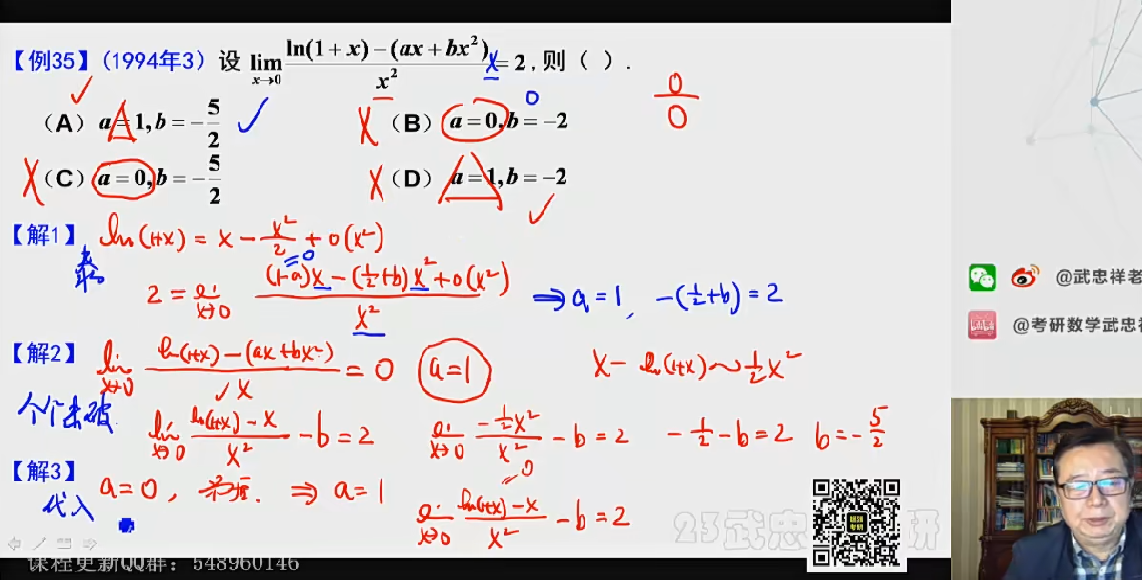 【例35】(1994年3) 设 lim x→0 ln(1+x)−(ax+bx²) / x² = 2, 则 ( ). 0/0
x
0
(A) a=1, b=−5/2 (B) a=0, b=−2
(C) a=0, b=−5/2 (D) a=1, b=−2
【解1】 ln(1+x) = x − x²/2 + o(x²)
泰勒 =0
2 = lim x→0 (1−a)x − (1/2+b)x² + o(x²) / x² ⇒ a=1, −(1/2+b)=2
【解2】 lim x→0 ln(1+x)−(ax+bx²) / x = 0 a=1 x−ln(1+x)~1/2x²
个个击破 lim x→0 ln(1+x)−x / x² − b = 2 lim x→0 −1/2x² / x² − b = 2 −1/2−b=2 b=−5/2
【解3】 a=0, ⇒ a=1
代入 lim x→0 ln(1+x)−x / x² − b = 2
课程更新QQ群: 548960146
@武忠祥老
@考研数学武忠祥